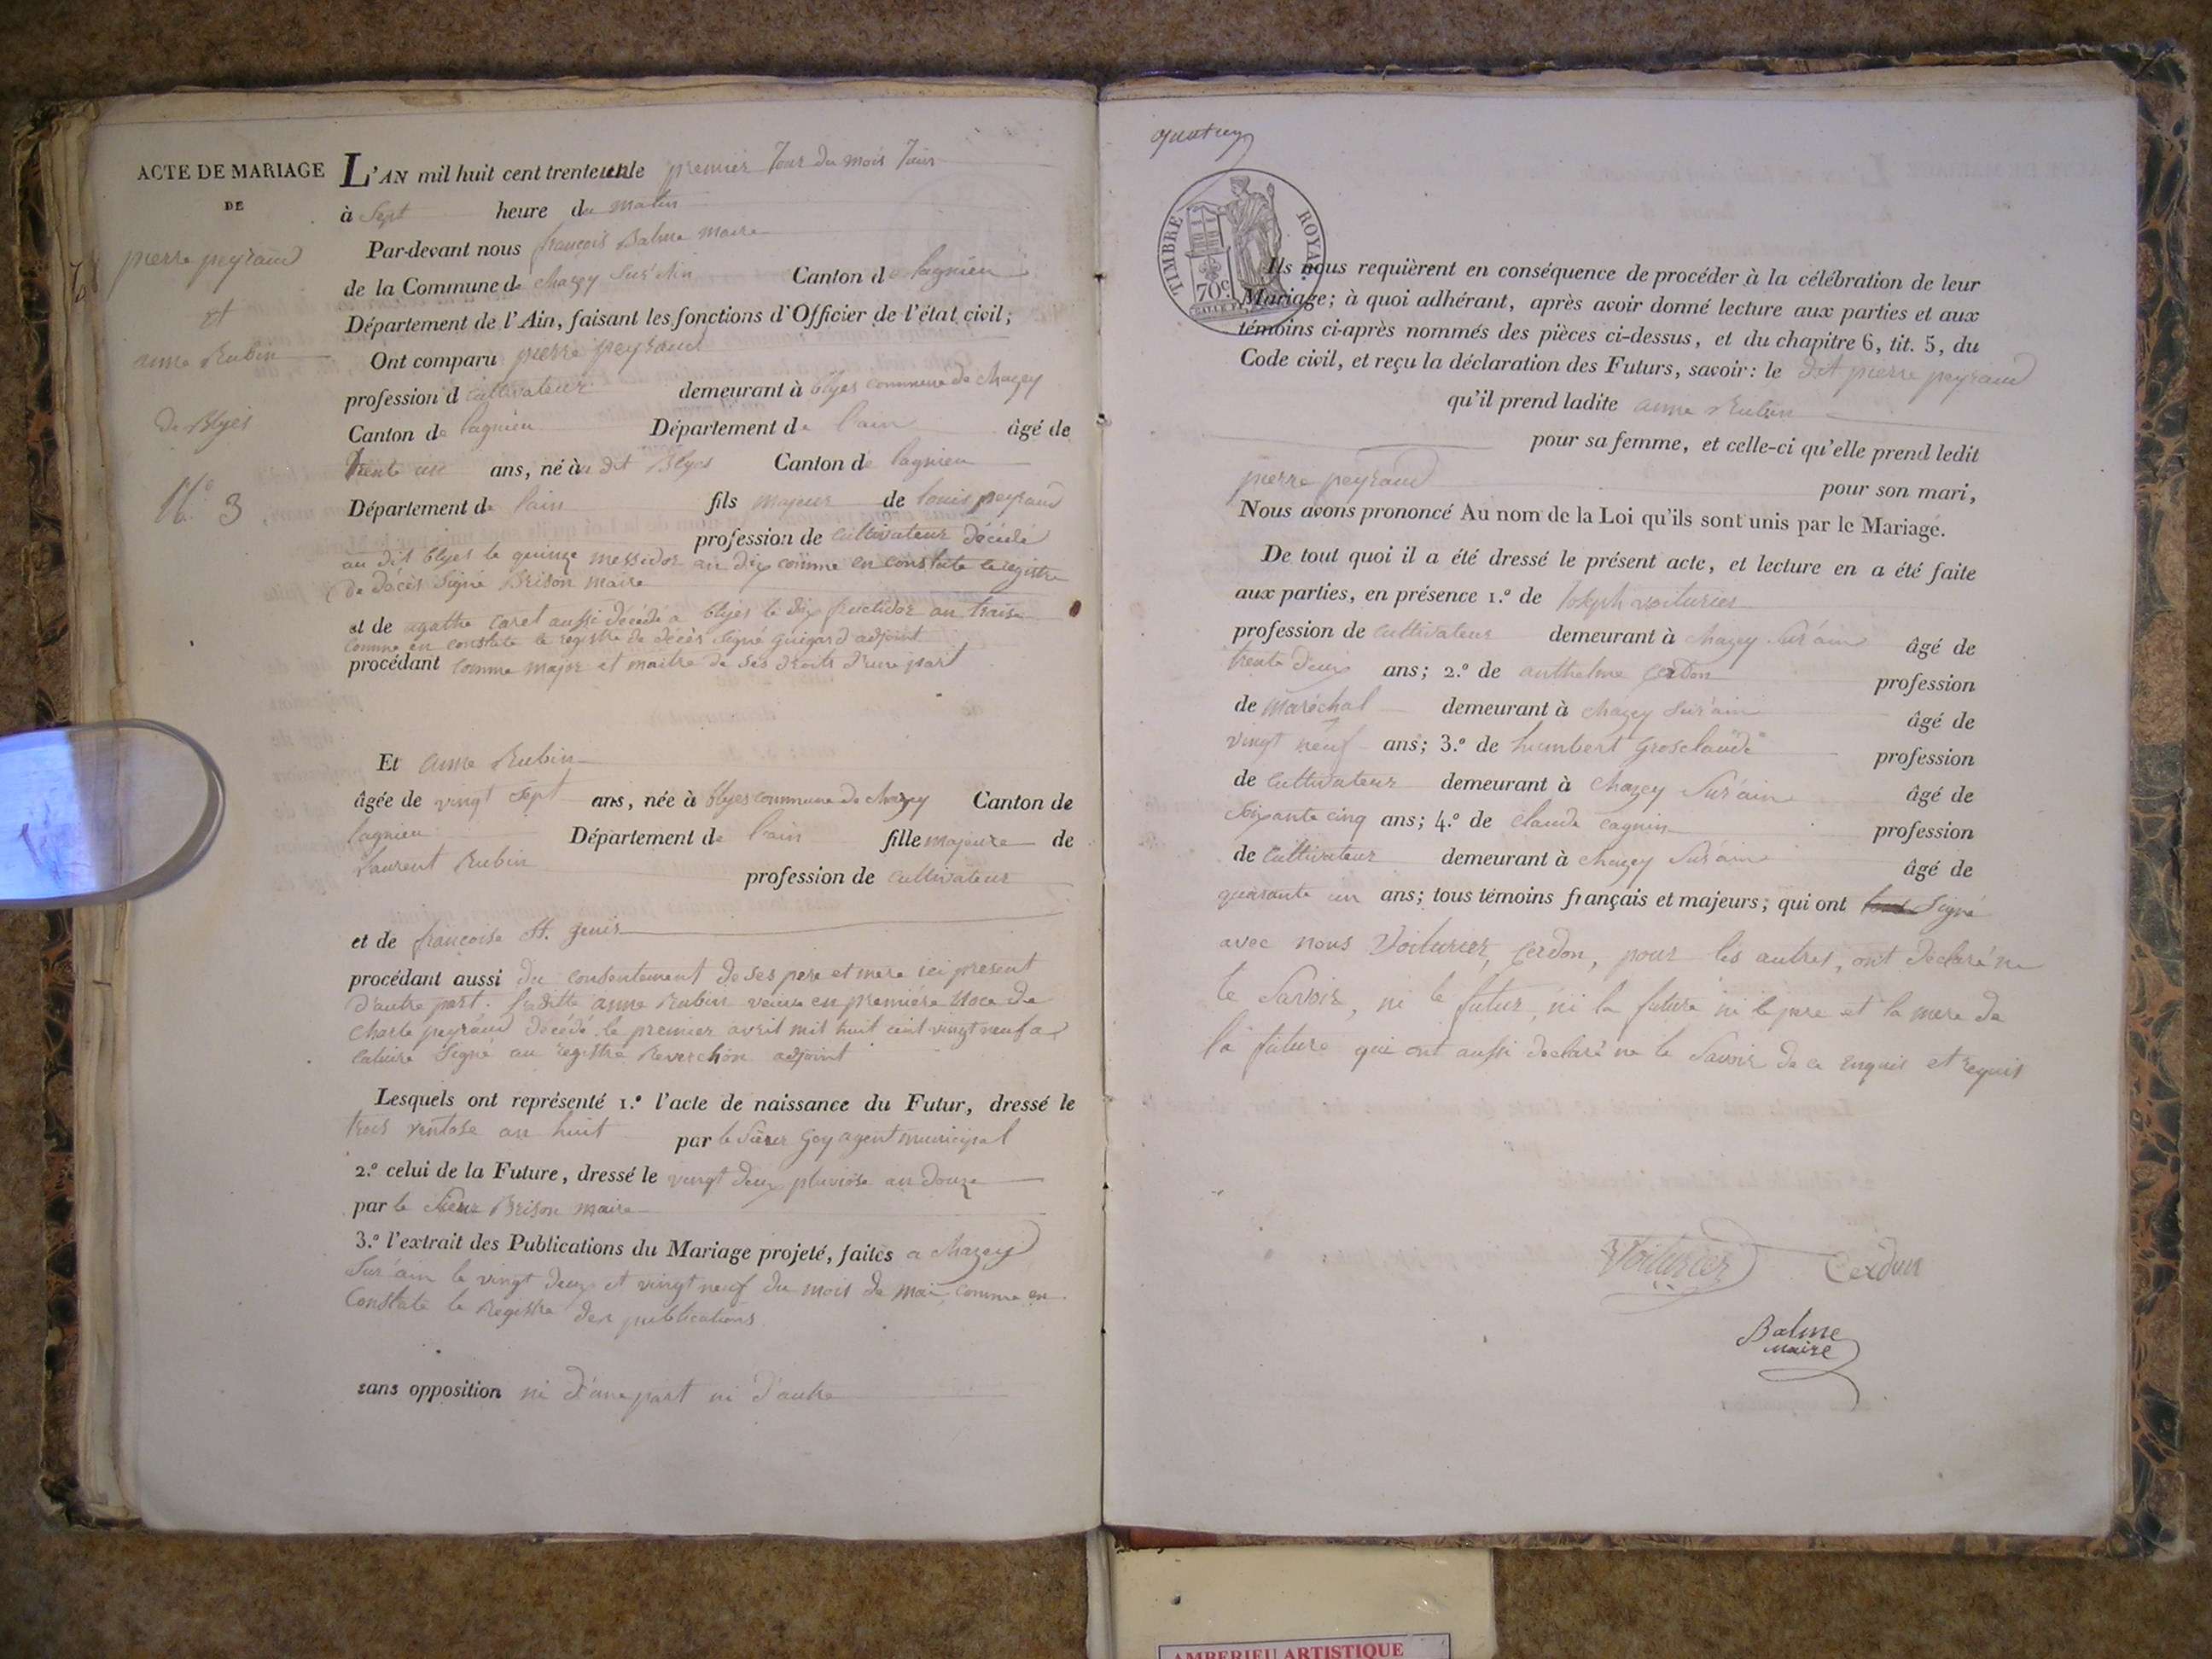 ACTE DE MARIAGE
DE
pierre peyraud
et
anne Rubin
de Blyes
N.º 3
L'AN mil huit cent trente un le premier Jour du mois Juin
à Sept heure du matin
Par-devant nous françois Balme maire
de la Commune de chazey Sur'Ain Canton de lagnieu
Département de l'Ain, faisant les fonctions d'Officier de l'état civil;
Ont comparu pierre peyraud
profession d cultivateur demeurant à blyes commune de chazey
Canton de lagnieu Département de l'ain âgé de
trente un ans, né à u dit Blyes Canton de lagnieu
Département de l'ain fils majeur de louis peyraud
profession de cultivateur décédé
au dit blyes le quinze messidor an dix comme en constate le registre
de décès Signé Brison maire
et de agathe caret aussi décédé a blyes le dix fructidor an traise
comme en constate le registre de décès signé guigard adjoint
procédant comme major et maitre de ses droits d'une part
Et anne Rubin
âgée de vingt Sept ans, née à blyes commune de chazey Canton de
lagnieu Département de l'ain fille majeure de
Laurent Rubin
profession de cultivateur
et de françoise St. genis
procédant aussi du consentement de ses pere et mere ici present
d'autre part. laditte anne Rubin veuve en premiére Noce de
charle peyraud décédé le premier avril mil huit cent vingt neuf a
caluire Signé au registre Reverchon adjoint
Lesquels ont représenté 1.º l'acte de naissance du Futur, dressé le
trois ventose an huit par le Sieur Goy agent municipal
2.º celui de la Future, dressé le vingt deux pluviôse an douze
par le Sieur Brison maire
3.º l'extrait des Publications du Mariage projeté, faites a chazey
Sur'ain le vingt deux et vingt neuf du mois de mai comme en
Constate le Registre des publications
sans opposition ni d'une part ni d'autre
TIMBRE ROYAL
70 c
Ils nous requièrent en conséquence de procéder à la célébration de leur
Mariage; à quoi adhérant, après avoir donné lecture aux parties et aux
témoins ci-après nommés des pièces ci-dessus, et du chapitre 6, tit. 5, du
Code civil, et reçu la déclaration des Futurs, savoir: le dit pierre peyraud
qu'il prend ladite anne Rubin
pour sa femme, et celle-ci qu'elle prend ledit
pierre peyraud pour son mari,
Nous avons prononcé Au nom de la Loi qu'ils sont unis par le Mariage.
De tout quoi il a été dressé le présent acte, et lecture en a été faite
aux parties, en présence 1.º de Joseph voiturier
profession de cultivateur demeurant à chazey Sur'ain âgé de
trente deux ans; 2.º de anthelme Cerdon profession
de maréchal demeurant à chazey Sur'ain âgé de
vingt neuf ans; 3.º de humbert Grosclaude profession
de cultivateur demeurant à chazey Sur'ain âgé de
Soixante cinq ans; 4.º de claude cagnin profession
de cultivateur demeurant à chazey Sur'ain âgé de
quarante un ans; tous témoins français et majeurs; qui ont tous Signé
avec nous Voiturier, Cerdon, pour les autres, ont déclaré ne
le Savoir, ni le futur, ni la future ni le pere et la mere de
la future qui ont aussi declaré ne le Savoir de ce enquis et requis
Voiturier Cerdon
Balme
maire
AMBERIEU ARTISTIQUE